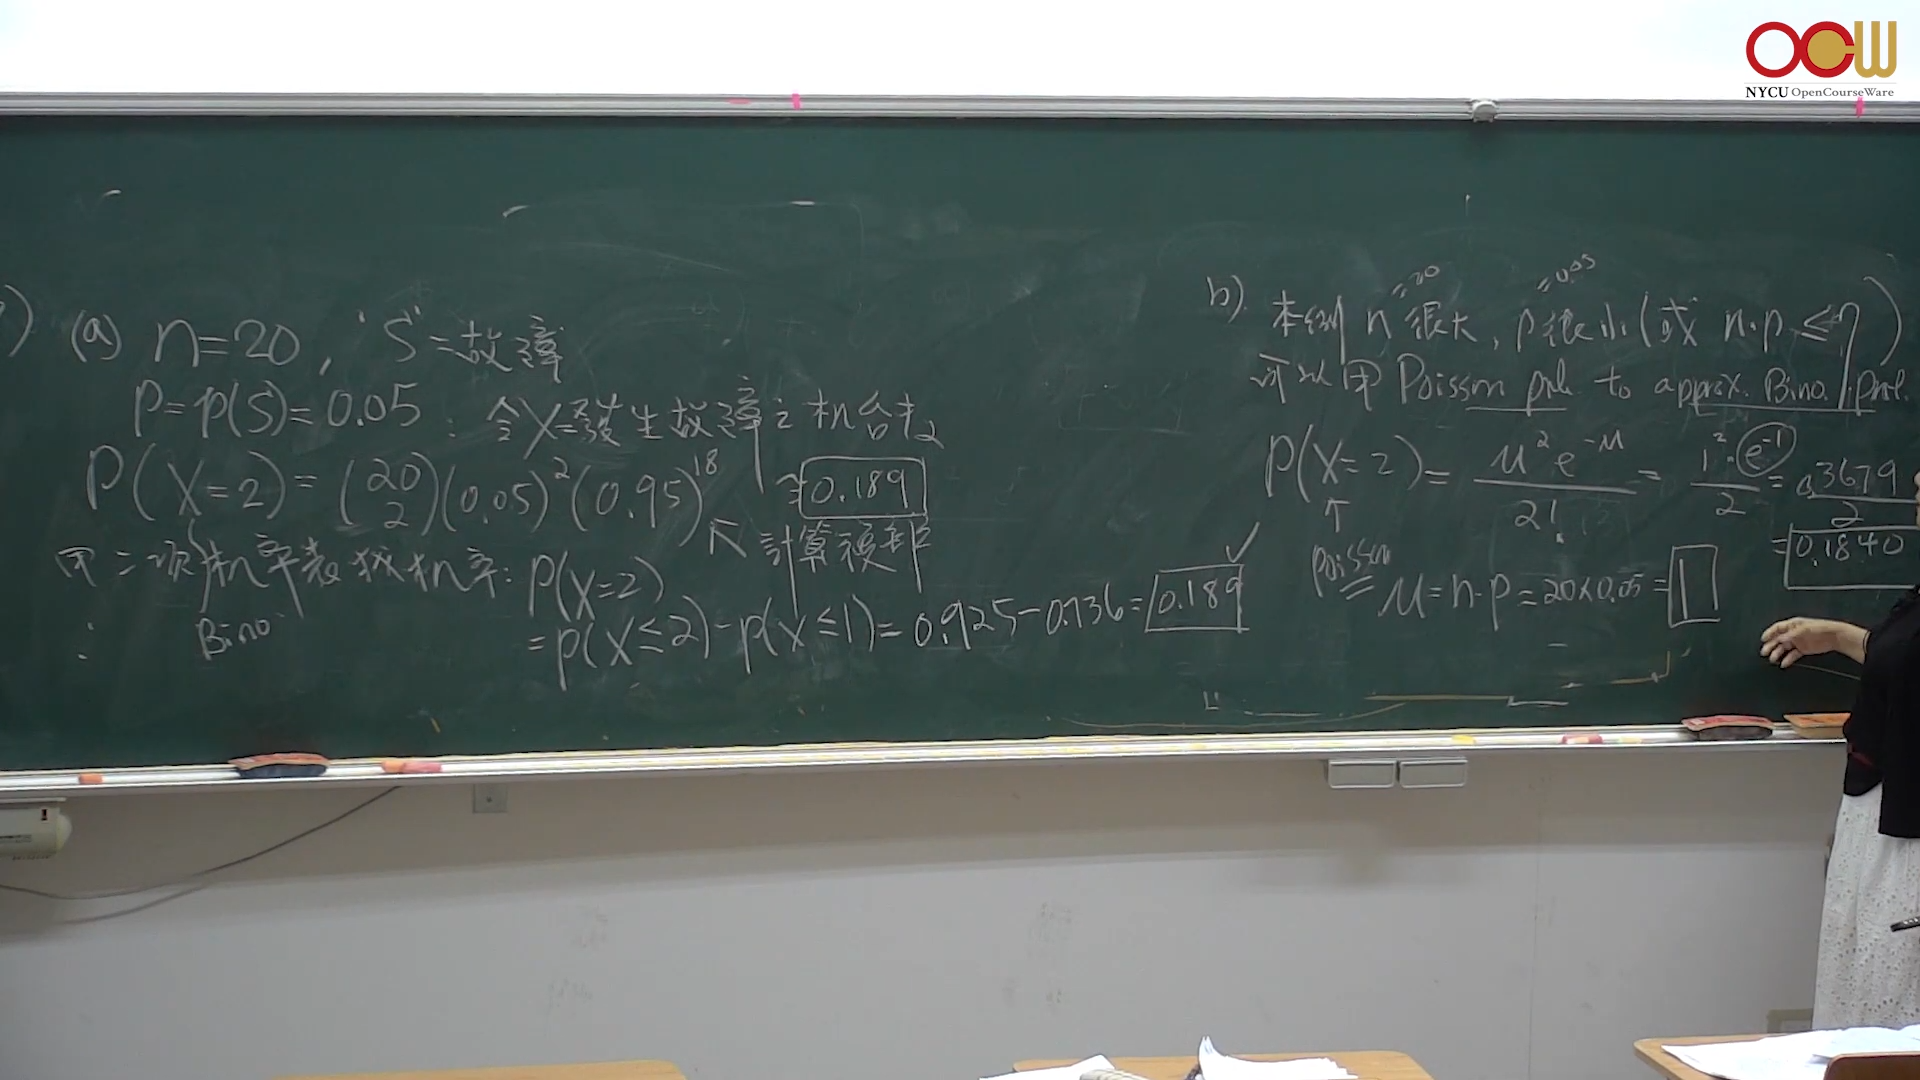 OCW
NYCU OpenCourseWare
(a) n=20, 'S'=故障
P=p(S)=0.05 : 令X=發生故障之机台數
P(X=2)=(20 2)(0.05)²(0.95)¹⁸ = 0.189
↖計算複雜
用二項机率表找机率: P(X=2)
Bino.
=P(X≤2)-p(X≤1)=0.925-0.736=0.189 ✓
b). 本例 n 很大, p 很小 (或 n·p ≤ 7)
=20 =0.05
可以用 Poisson prob. to approx. Bino. prob.
P(X=2)= μ²e^-μ / 2! = 1²·e⁻¹ / 2 = 0.3679 / 2
=0.1840
↑
poisson
μ=n·p=20×0.05=1